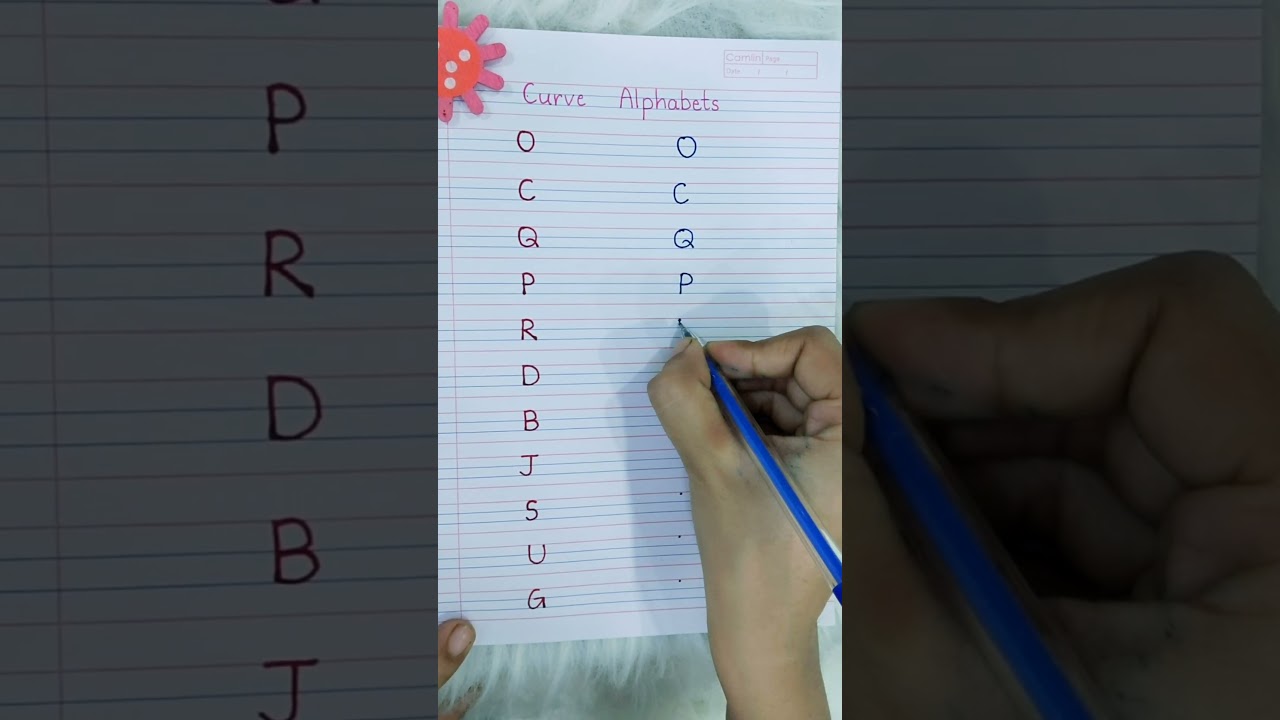 Camlin Page
Date / /
Curve Alphabets
O O
C C
Q Q
P P
R
D
B
J
S
U
G
P
R
D
B
J